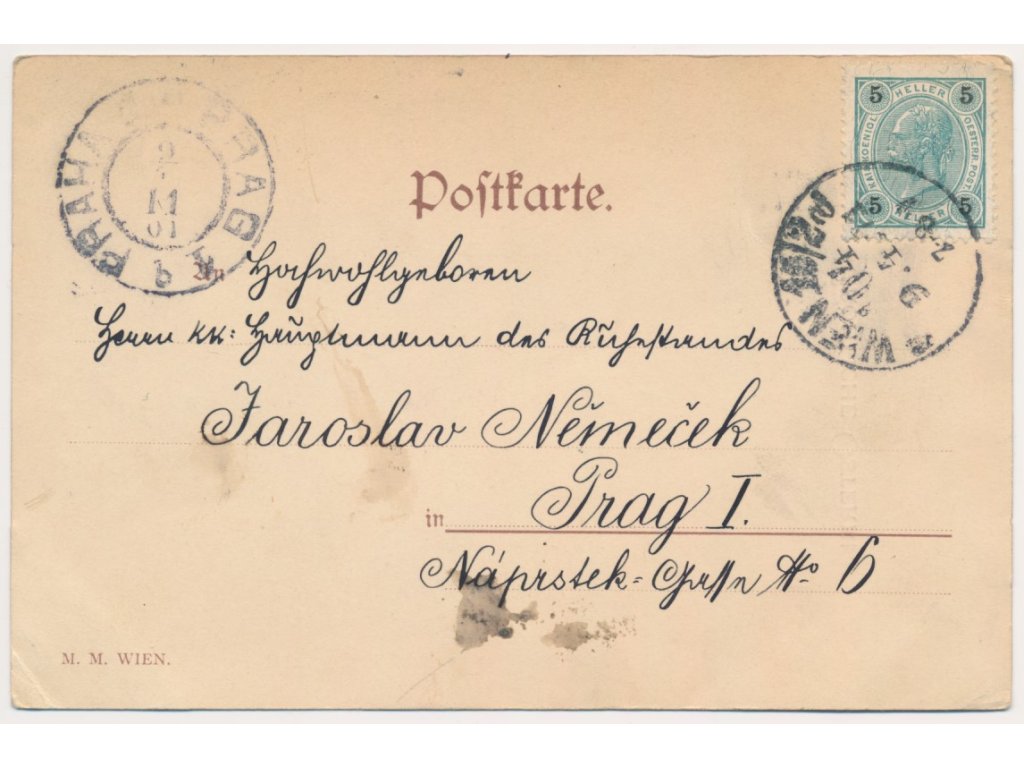 PRAHA PRAG
5 HELLER 5
KAIS. KOENIGL. OESTERR. POST.
5 HELLER 5
Poſtkarte.
WIEN
An Hochwohlgeboren
Herrn kk: Hauptmann des Ruhestandes
Jaroslav Němeček
in Prag I.
Náprstek-Gasse No 6
M. M. WIEN.